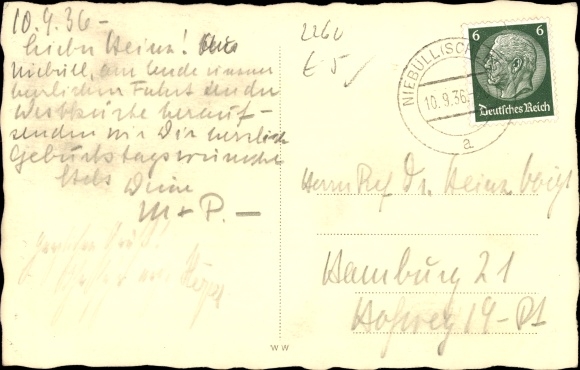 10.9.36 –
Lieber Heinz! Aus
Niebüll, am Ende unserer
herrlichen Fahrt an der
Westküste herauf –
senden wir Dir herzliche
Geburtstagswünsche
Stets Deine
M + P. –
2260
€ 5
NIEBÜLL
10.9.36
a
6 6
Deutsches Reich
Herrn Ref. Dr. Heinz Voigt
Hamburg 21
Hofweg 19 - Pt
WW